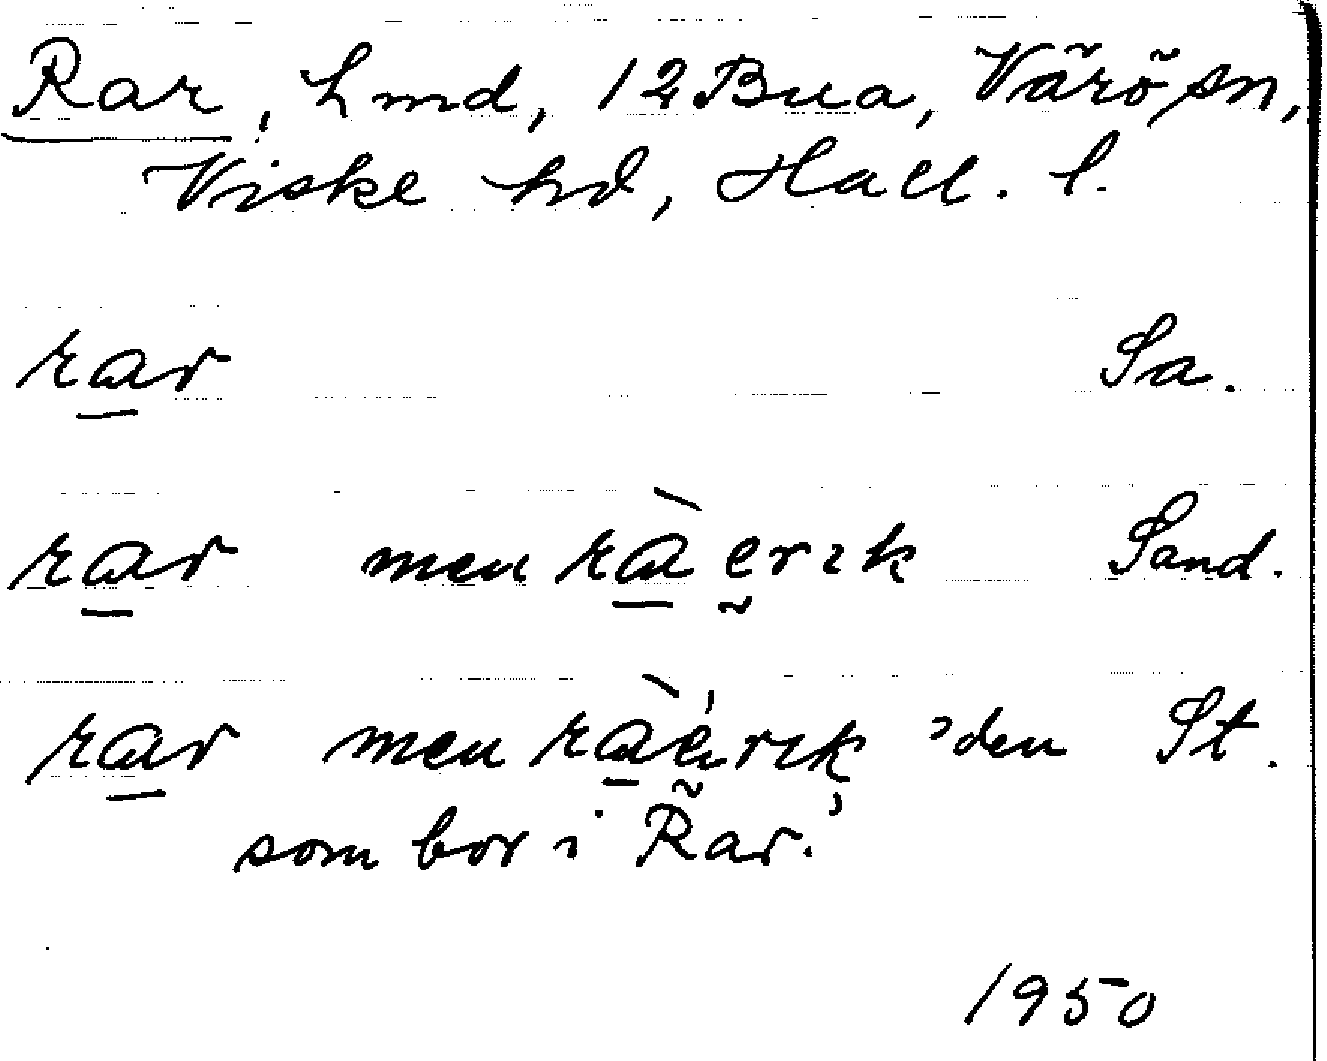 Rar, hmd, 12 Bua, Värö sn,
Viske hd, Hall. l.
rar Sa.
rar men ràerɪk Sand.
rar men ràérɪk ’den St.
som bor i Rar.’
1950